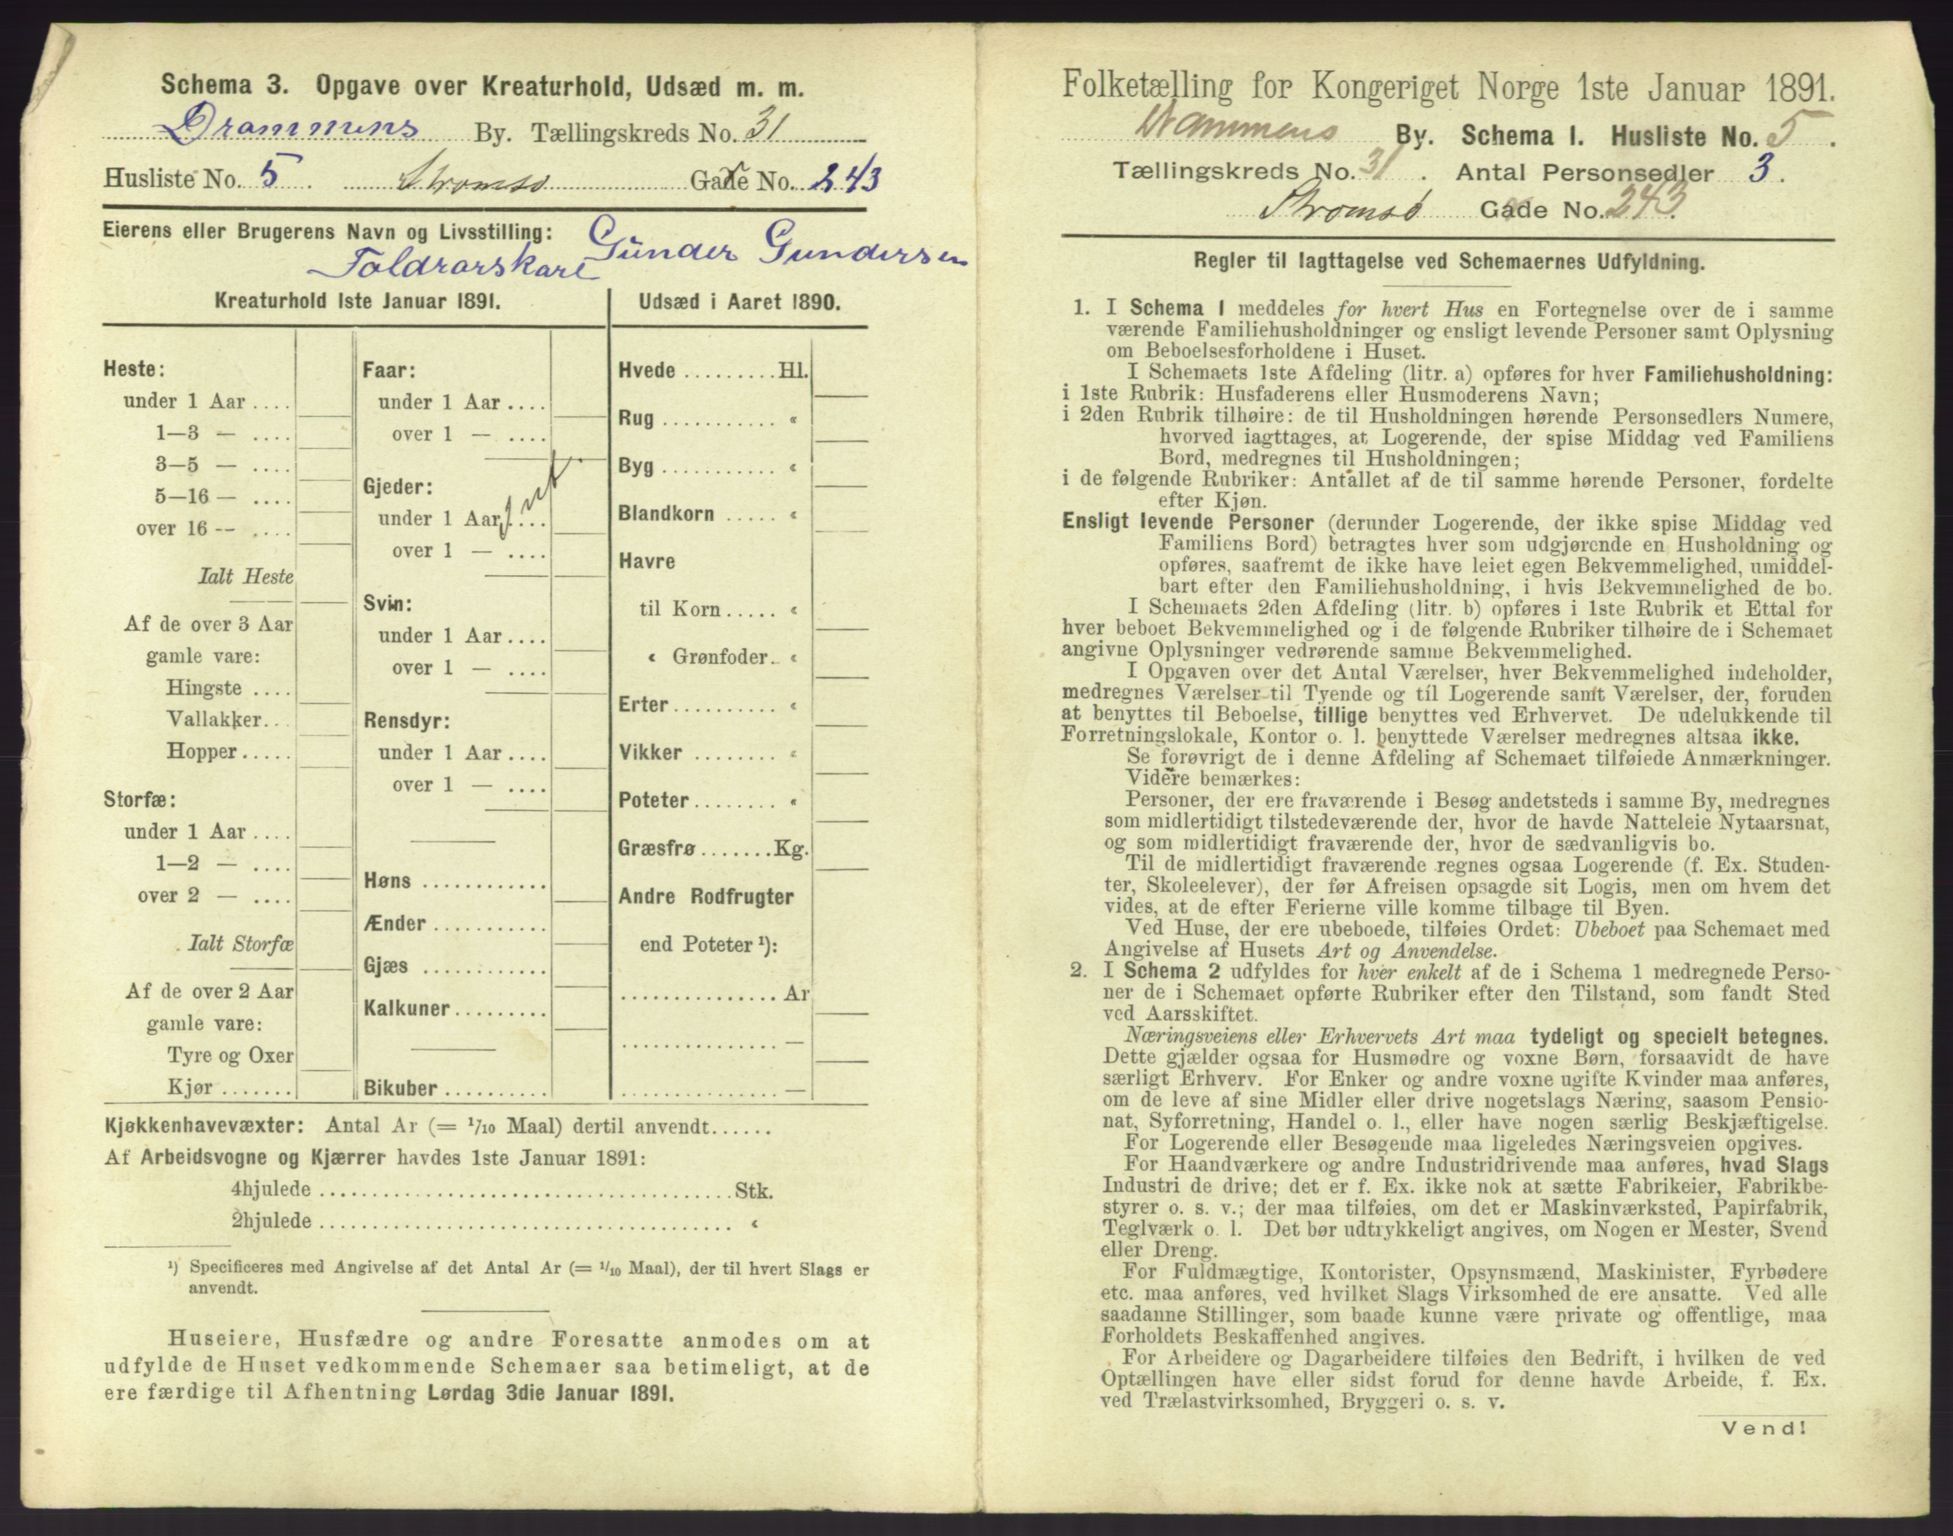 Schema 3. Opgave over Kreaturhold, Udsæd m. m.
Drammens By. Tællingskreds No. 31
Husliste No. 5. Strømsø Gade No. 243
Eierens eller Brugerens Navn og Livsstilling: Gunder Gundersen
Kreaturhold 1ste Januar 1891.
Heste:
under 1 Aar....
1—3 — ....
3—5 — ....
5—16 — ....
over 16 -- ....
Ialt Heste
Af de over 3 Aar
gamle vare:
Hingste ....
Vallakker...
Hopper.....
Storfæ:
under 1 Aar....
1—2 — ....
over 2 — ....
Ialt Storfæ
Af de over 2 Aar
gamle vare:
Tyre og Oxer
Kjør.......
Faar:
under 1 Aar....
over 1 — ....
Gjeder:
under 1 Aar....
over 1 — ....
Svin:
under 1 Aar....
over 1 — ....
Rensdyr:
under 1 Aar....
over 1 — ....
Høns............
Ænder...........
Gjæs............
Kalkuner.........
Bikuber..........
Udsæd i Aaret 1890.
Hvede.........Hl.
Rug........... «
Byg........... «
Blandkorn..... «
Havre
til Korn..... «
« Grønfoder.. «
Erter.......... «
Vikker ........ «
Poteter........ «
Græsfrø.......Kg.
Andre Rodfrugter
end Poteter ¹):
...............Ar
............... —
............... —
Kjøkkenhavevæxter: Antal Ar (= 1/10 Maal) dertil anvendt......
Af Arbeidsvogne og Kjærrer havdes 1ste Januar 1891:
4hjulede......................................Stk.
2hjulede...................................... «
¹) Specificeres med Angivelse af det Antal Ar (= 1/10 Maal), der til hvert Slags er
anvendt.
Huseiere, Husfædre og andre Foresatte anmodes om at
udfylde de Huset vedkommende Schemaer saa betimeligt, at de
ere færdige til Afhentning Lørdag 3die Januar 1891.
Folketælling for Kongeriget Norge 1ste Januar 1891.
Drammens By. Schema I. Husliste No. 5.
Tællingskreds No. 31. Antal Personsedler 3.
Strømsø Gade No. 243.
Regler til Iagttagelse ved Schemaernes Udfyldning.
1. I Schema 1 meddeles for hvert Hus en Fortegnelse over de i samme
værende Familiehusholdninger og ensligt levende Personer samt Oplysning
om Beboelsesforholdene i Huset.
I Schemaets 1ste Afdeling (litr. a) opføres for hver Familiehusholdning:
i 1ste Rubrik: Husfaderens eller Husmoderens Navn;
i 2den Rubrik tilhøire: de til Husholdningen hørende Personsedlers Numere,
hvorved iagttages, at Logerende, der spise Middag ved Familiens
Bord, medregnes til Husholdningen;
i de følgende Rubriker: Antallet af de til samme hørende Personer, fordelte
efter Kjøn.
Ensligt levende Personer (derunder Logerende, der ikke spise Middag ved
Familiens Bord) betragtes hver som udgjørende en Husholdning og
opføres, saafremt de ikke have leiet egen Bekvemmelighed, umiddel-
bart efter den Familiehusholdning, i hvis Bekvemmelighed de bo.
I Schemaets 2den Afdeling (litr. b) opføres i 1ste Rubrik et Ettal for
hver beboet Bekvemmelighed og i de følgende Rubriker tilhøire de i Schemaet
angivne Oplysninger vedrørende samme Bekvemmelighed.
I Opgaven over det Antal Værelser, hver Bekvemmelighed indeholder,
medregnes Værelser til Tyende og til Logerende samt Værelser, der, foruden
at benyttes til Beboelse, tillige benyttes ved Erhvervet. De udelukkende til
Forretningslokale, Kontor o. l. benyttede Værelser medregnes altsaa ikke.
Se forøvrigt de i denne Afdeling af Schemaet tilføiede Anmærkninger.
Videre bemærkes:
Personer, der ere fraværende i Besøg andetsteds i samme By, medregnes
som midlertidigt tilstedeværende der, hvor de havde Natteleie Nytaarsnat,
og som midlertidigt fraværende der, hvor de sædvanligvis bo.
Til de midlertidigt fraværende regnes ogsaa Logerende (f. Ex. Studen-
ter, Skoleelever), der før Afreisen opsagde sit Logis, men om hvem det
vides, at de efter Ferierne ville komme tilbage til Byen.
Ved Huse, der ere ubeboede, tilføies Ordet: Ubeboet paa Schemaet med
Angivelse af Husets Art og Anvendelse.
2. I Schema 2 udfyldes for hver enkelt af de i Schema 1 medregnede Perso-
ner de i Schemaet opførte Rubriker efter den Tilstand, som fandt Sted
ved Aarsskiftet.
Næringsveiens eller Erhvervets Art maa tydeligt og specielt betegnes.
Dette gjælder ogsaa for Husmødre og voxne Børn, forsaavidt de have
særligt Erhverv. For Enker og andre voxne ugifte Kvinder maa anføres,
om de leve af sine Midler eller drive nogetslags Næring, saasom Pensio-
nat, Syforretning, Handel o. l., eller have nogen særlig Beskjæftigelse.
For Logerende eller Besøgende maa ligeledes Næringsveien opgives.
For Haandværkere og andre Industridrivende maa anføres, hvad Slags
Industri de drive; det er f. Ex. ikke nok at sætte Fabrikeier, Fabrikbe-
styrer o. s. v.; der maa tilføies, om det er Maskinværksted, Papirfabrik,
Teglværk o. l. Det bør udtrykkeligt angives, om Nogen er Mester, Svend
eller Dreng.
For Fuldmægtige, Kontorister, Opsynsmænd, Maskinister, Fyrbødere
etc. maa anføres, ved hvilket Slags Virksomhed de ere ansatte. Ved alle
saadanne Stillinger, som baade kunne være private og offentlige, maa
Forholdets Beskaffenhed angives.
For Arbeidere og Dagarbeidere tilføies den Bedrift, i hvilken de ved
Optællingen have eller sidst forud for denne havde Arbeide, f. Ex.
ved Trælastvirksomhed, Bryggeri o. s. v.
Vend!